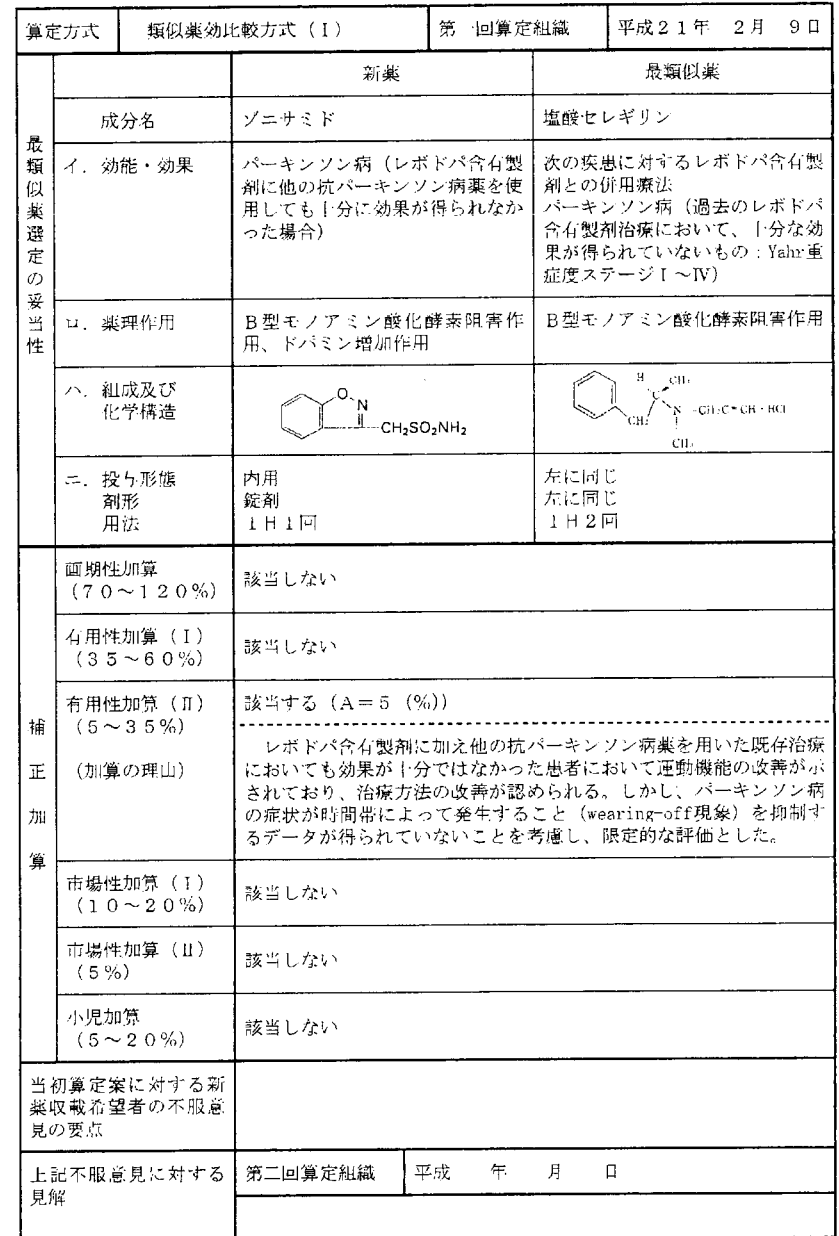 算定方式 類似薬効比較方式(Ⅰ) 第一回算定組織 平成21年 2月 9日
最類似薬選定の妥当性
新薬 最類似薬
成分名 ゾニサミド 塩酸セレギリン
イ．効能・効果
パーキンソン病(レボドパ含有製
剤に他の抗パーキンソン病薬を使
用しても十分に効果が得られなか
った場合)
次の疾患に対するレボドパ含有製
剤との併用療法
パーキンソン病(過去のレボドパ
含有製剤治療において、十分な効
果が得られていないもの：Yahr重
症度ステージⅠ～Ⅳ)
ロ．薬理作用
B型モノアミン酸化酵素阻害作
用、ドパミン増加作用
B型モノアミン酸化酵素阻害作用
ハ．組成及び
化学構造
O
N
CH₂SO₂NH₂
H
CH₃
C
N
CH₂
-CH₂C≡CH・HCl
CH₃
ニ．投与形態
剤形
用法
内用
錠剤
1日1回
左に同じ
左に同じ
1日2回
補正加算
画期性加算
(70～120%)
該当しない
有用性加算(Ⅰ)
(35～60%)
該当しない
有用性加算(Ⅱ)
(5～35%)
(加算の理由)
該当する(A＝5(%))
レボドパ含有製剤に加え他の抗パーキンソン病薬を用いた既存治療
においても効果が十分ではなかった患者において運動機能の改善が示
されており、治療方法の改善が認められる。しかし、パーキンソン病
の症状が時間帯によって発生すること(wearing-off現象)を抑制す
るデータが得られていないことを考慮し、限定的な評価とした。
市場性加算(Ⅰ)
(10～20%)
該当しない
市場性加算(Ⅱ)
(5%)
該当しない
小児加算
(5～20%)
該当しない
当初算定案に対する新
薬収載希望者の不服意
見の要点
上記不服意見に対する
見解
第二回算定組織 平成 年 月 日